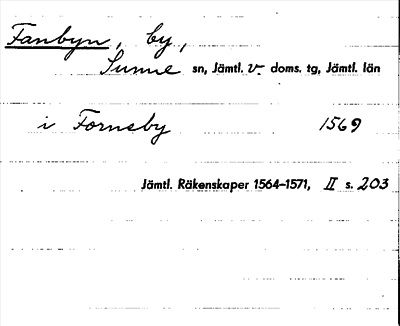 Fanbyn, by,
Sunne sn, Jämtl. v. doms. tg, Jämtl. län
i Forneby 1569
Jämtl. Räkenskaper 1564-1571, II s. 203